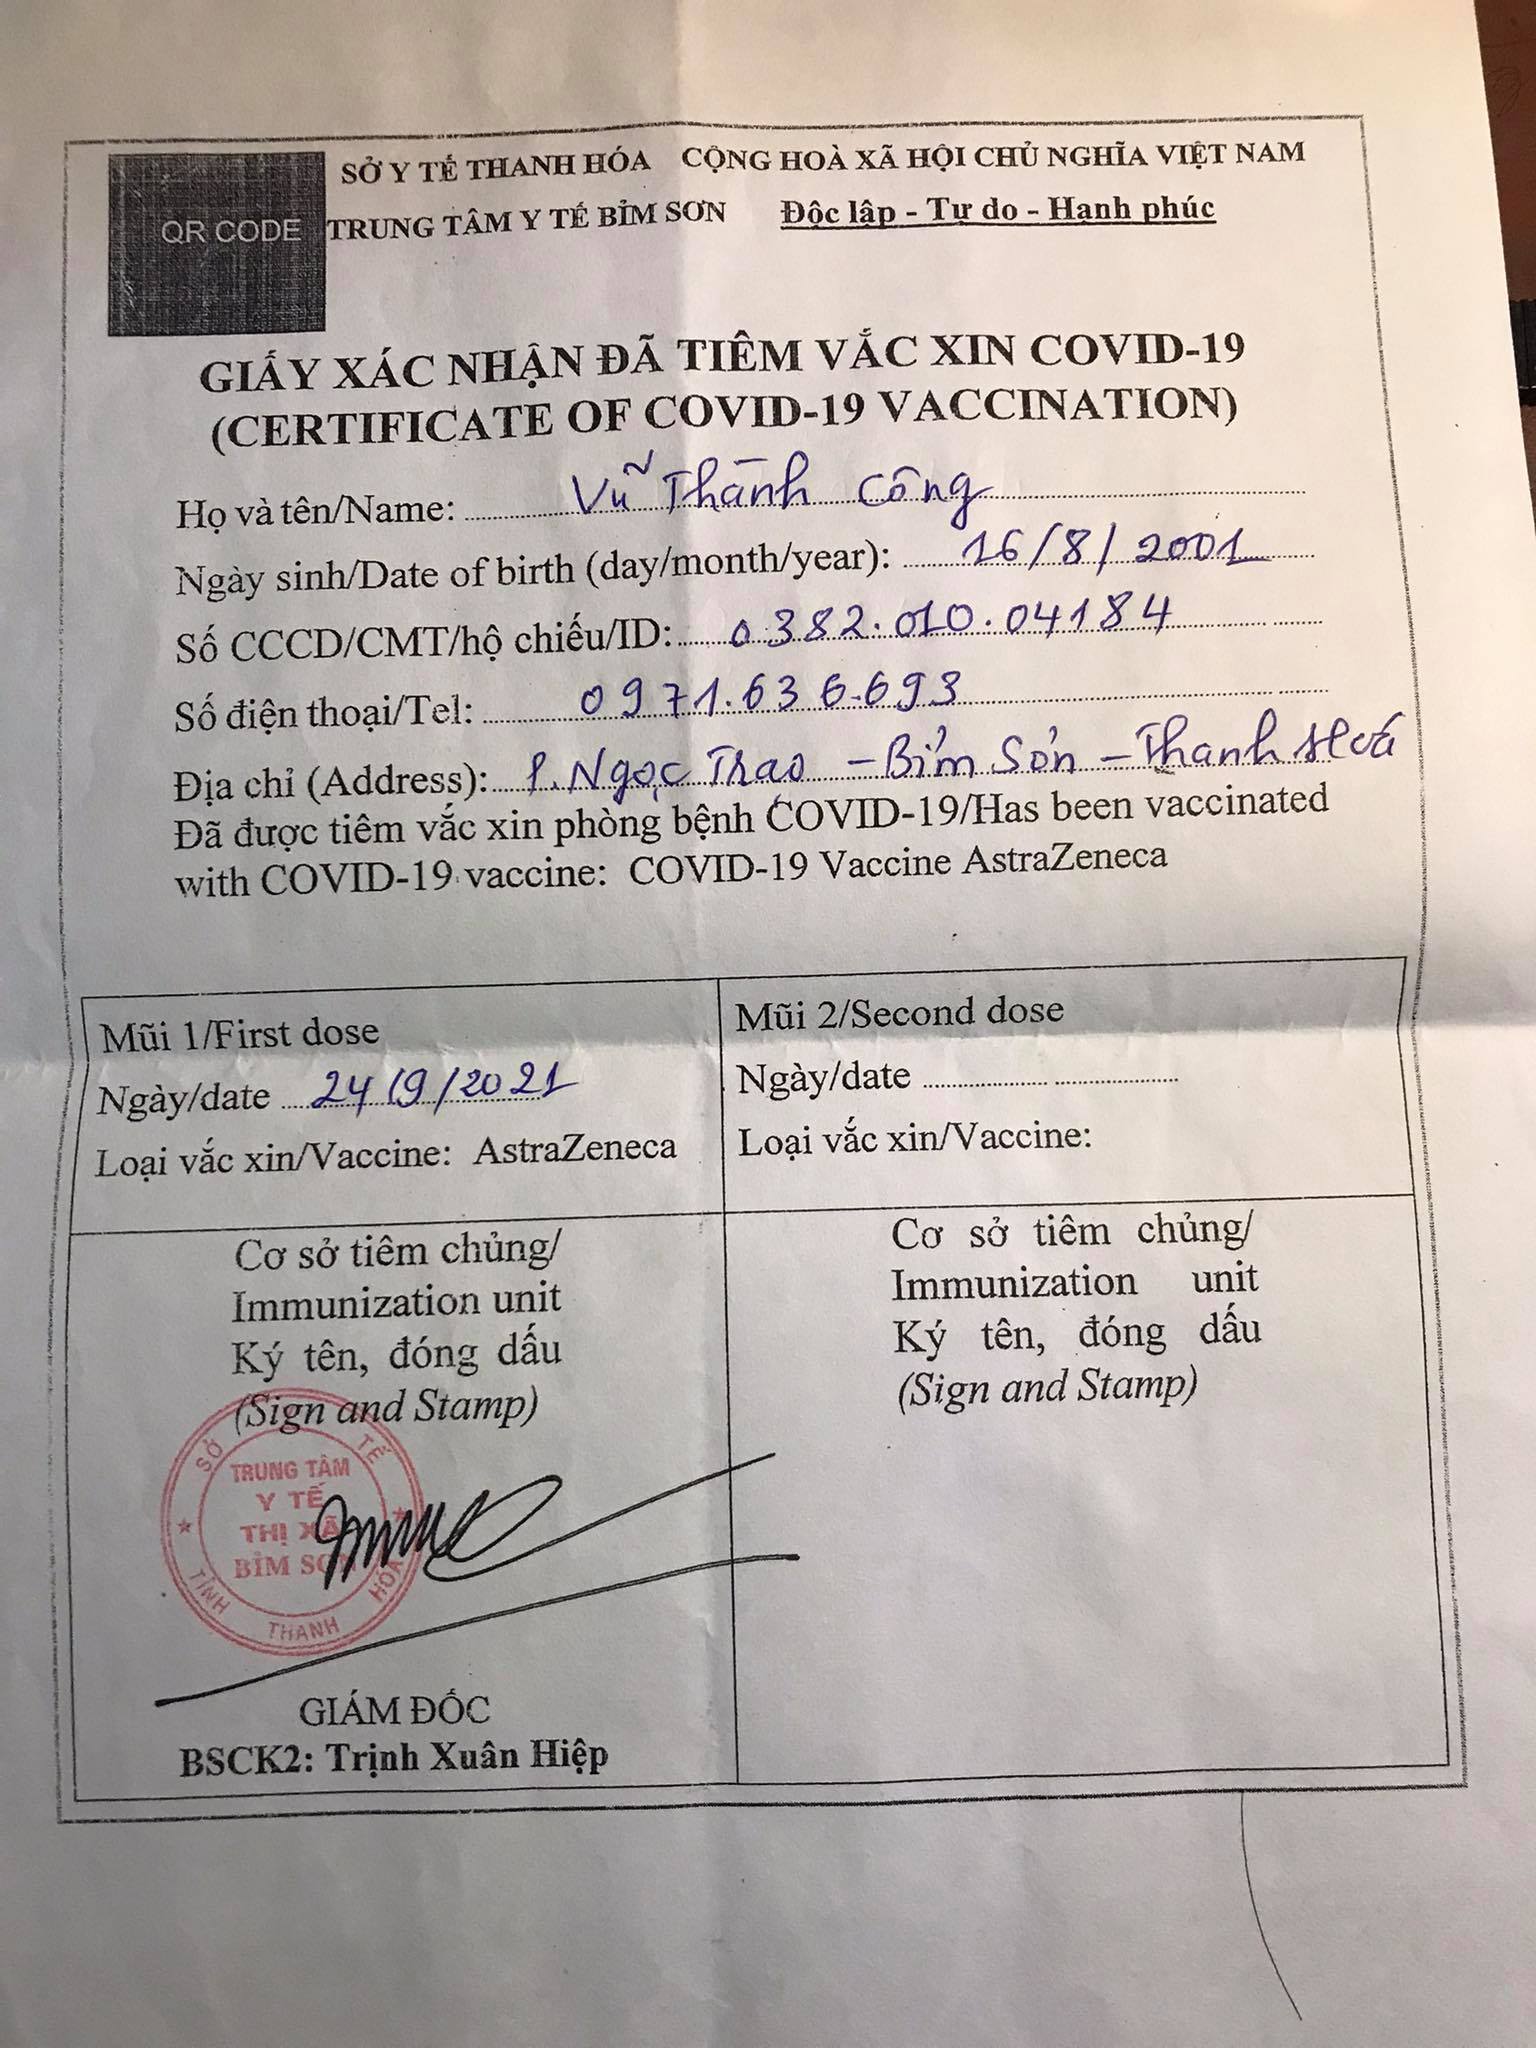 QR CODE
SỞ Y TẾ THANH HÓA CỘNG HOÀ XÃ HỘI CHỦ NGHĨA VIỆT NAM
TRUNG TÂM Y TẾ BỈM SƠN Độc lập - Tự do - Hạnh phúc
GIẤY XÁC NHẬN ĐÃ TIÊM VẮC XIN COVID-19
(CERTIFICATE OF COVID-19 VACCINATION)
Họ và tên/Name: Vũ Thành Công
Ngày sinh/Date of birth (day/month/year): 16/8/2001
Số CCCD/CMT/hộ chiếu/ID: 0382.010.04184
Số điện thoại/Tel: 0971.636.693
Địa chỉ (Address): P. Ngọc Trạo - Bỉm Sơn - Thanh Hoá
Đã được tiêm vắc xin phòng bệnh COVID-19/Has been vaccinated
with COVID-19 vaccine: COVID-19 Vaccine AstraZeneca
Mũi 1/First dose
Ngày/date 24/9/2021
Loại vắc xin/Vaccine: AstraZeneca
Mũi 2/Second dose
Ngày/date
Loại vắc xin/Vaccine:
Cơ sở tiêm chủng/
Immunization unit
Ký tên, đóng dấu
(Sign and Stamp)
SỞ Y TẾ
TRUNG TÂM
Y TẾ
THỊ XÃ
BỈM SƠN
TỈNH THANH HÓA
GIÁM ĐỐC
BSCK2: Trịnh Xuân Hiệp
Cơ sở tiêm chủng/
Immunization unit
Ký tên, đóng dấu
(Sign and Stamp)